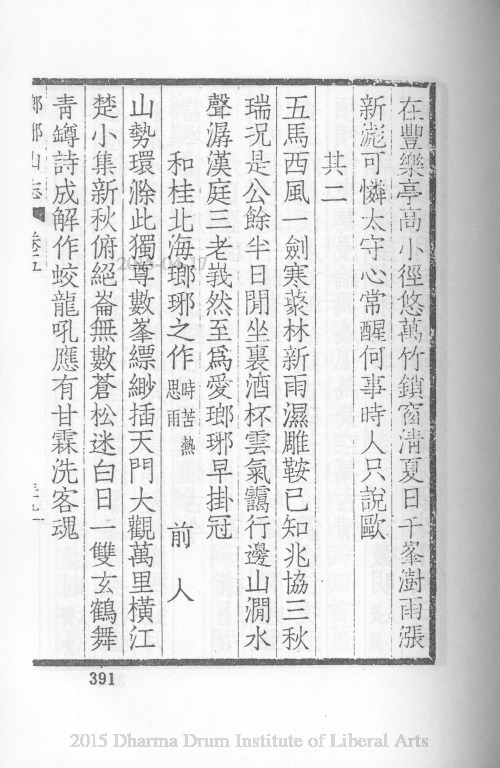 在豐樂亭高小徑悠萬竹鎖窗清夏日千峯澍雨漲
新瀧可憐太守心常醒何事時人只說歐
其二
五馬西風一劍寒蓑林新雨濕雕鞍已知兆協三秋
瑞况是公餘半日閒坐裏酒杯雲氣靄行邊山澗水
聲潺漢庭三老峩然至爲愛瑯琊早掛冠
和桂北海瑯琊之作 時苦熱思雨 前人
山勢環滁此獨尊數峯縹緲插天門大觀萬里橫江
楚小集新秋俯絕崙無數蒼松迷白日一雙玄鶴舞
青罇詩成解作蛟龍吼應有甘霖洗客魂
山志 卷五
391
2015 Dharma Drum Institute of Liberal Arts